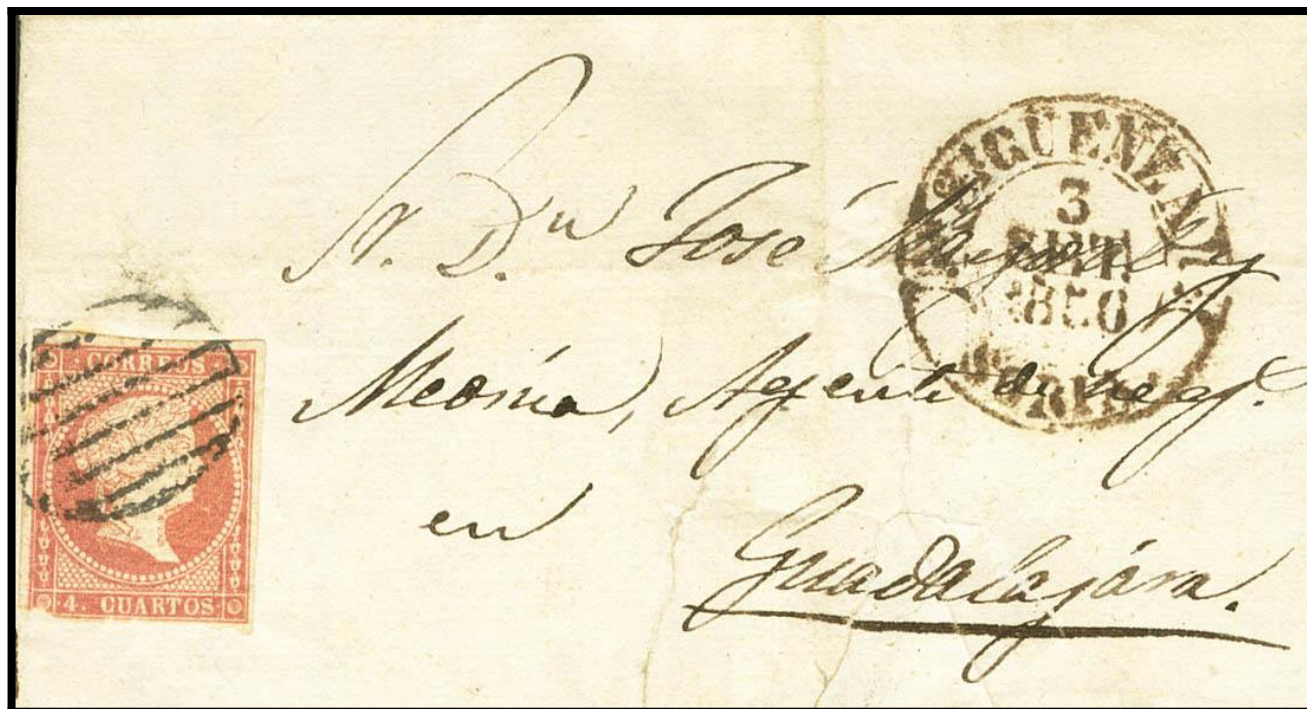 SIGÜENZA
3
SET.
1856
Sr. Dn José Mayoral y
Medina, Agente de neg.s
en
Guadalajára.
CORREOS
4. CUARTOS